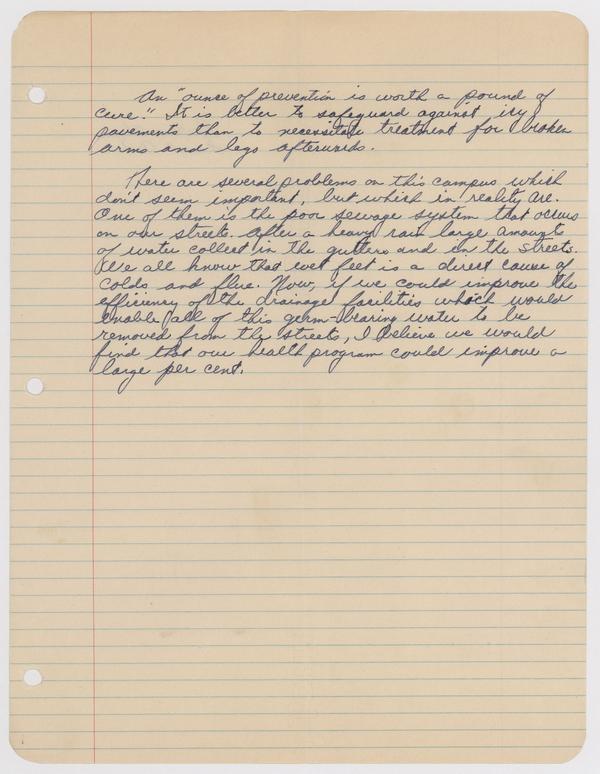 An "ounce of prevention is worth a pound of
cure." It is better to safeguard against icy
pavements than to necessitate treatment for broken
arms and legs afterwards.
There are several problems on this campus which
don't seem important, but which in reality are.
One of them is the poor sewage system that occurs
on our streets. After a heavy rain large amounts
of water collect in the gutters and in the streets.
We all know that wet feet is a direct cause of
colds and flue. Now, if we could improve the
efficiency of the drainage facilities which would
enable all of this germ-bearing water to be
removed from the streets, I believe we would
find that our health program could improve a
large per cent.